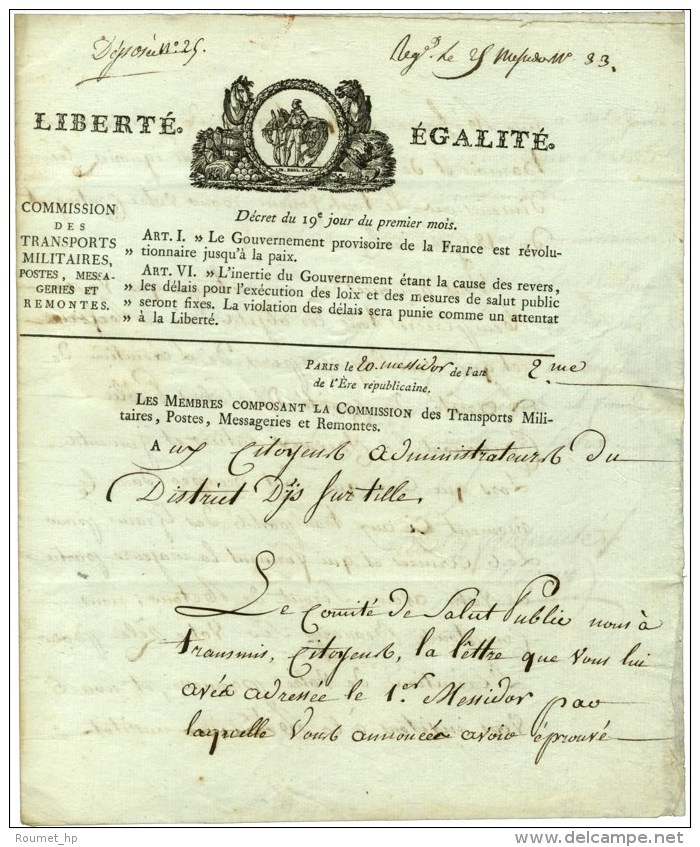 Déposée Nº 25.
Regd. le 25 Messidor Nº 33.
LIBERTÉ.
ÉGALITÉ.
COMMISSION
DES
TRANSPORTS
MILITAIRES,
POSTES, MESSA-
GERIES ET
REMONTES.
Décret du 19e jour du premier mois.
ART. I. » Le Gouvernement provisoire de la France est révolu-
» tionnaire jusqu'à la paix.
ART. VI. » L'inertie du Gouvernement étant la cause des revers,
» les délais pour l'exécution des loix et des mesures de salut public
» seront fixes. La violation des délais sera punie comme un attentat
» à la Liberté.
PARIS le 20 messidor de l'an 2me
de l'Ère républicaine.
LES MEMBRES COMPOSANT LA COMMISSION des Transports Mili-
taires, Postes, Messageries et Remontes.
Aux Citoyens administrateurs du
District D'is sur tille.
Le Comité de Salut Public nous à
transmis, Citoyens, la lettre que Vous lui
avéz adressée le 1.er Messidor par
laquelle Vous annoncéz avoir éprouvé
Roumet_hp
www.delcampe.net